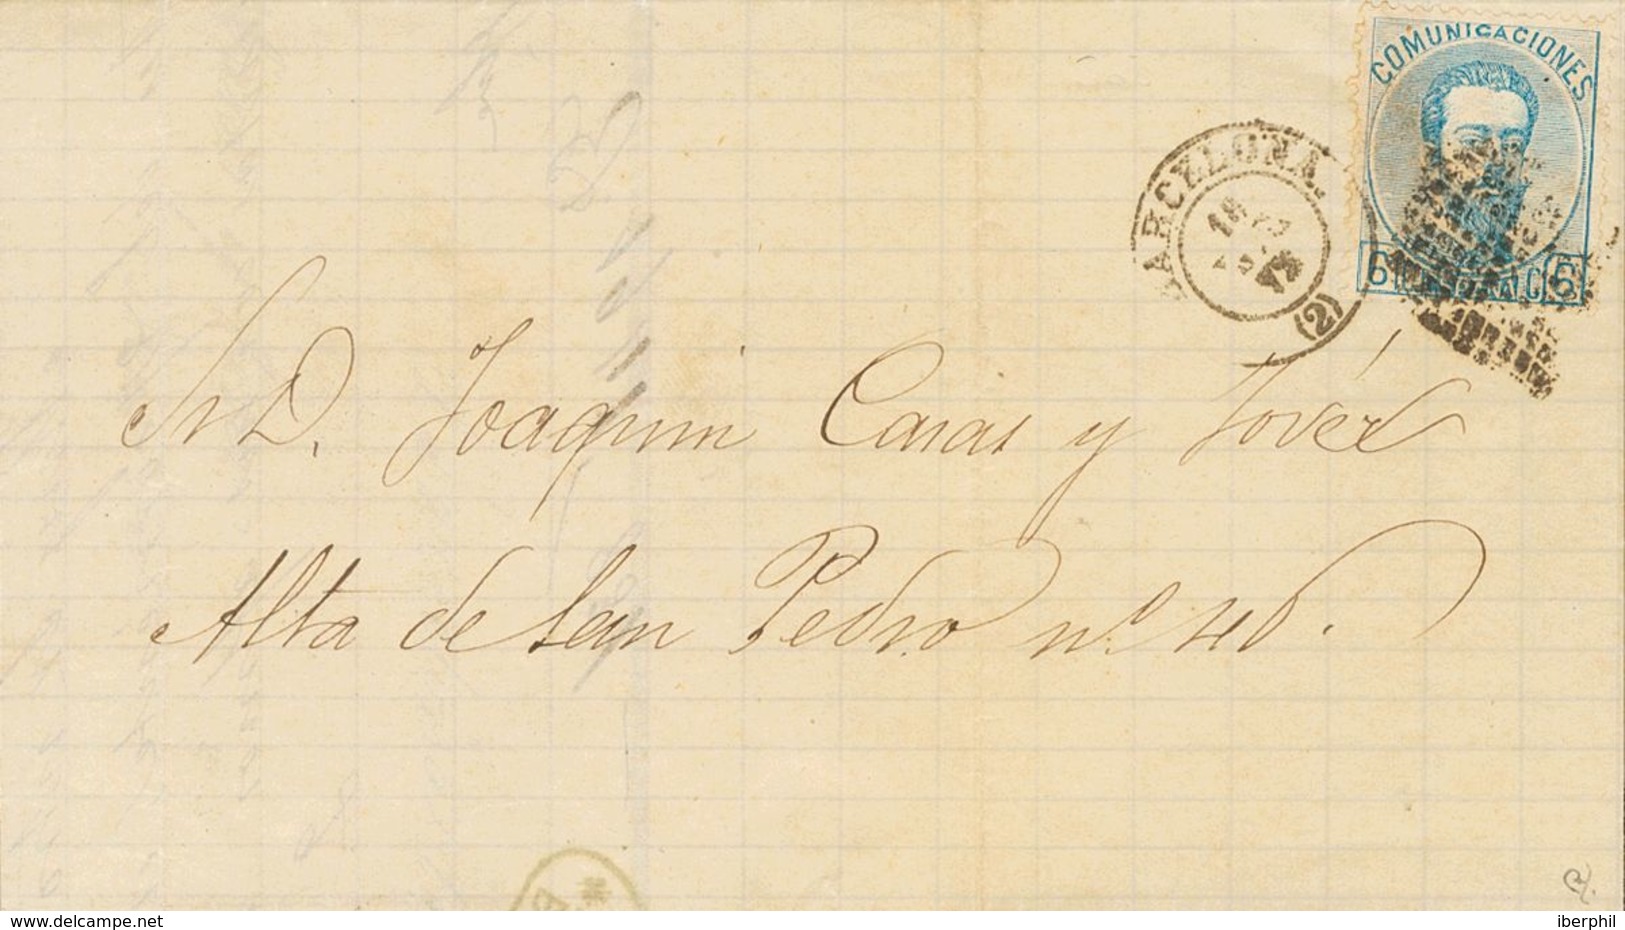 COMUNICACIONES
BARCELONA.
18
73
(2)
6 C 6
Sr D. Joaquim Casas y Jover
Alta de San Pedro nº 46.
www.delcampe.net
iberphil